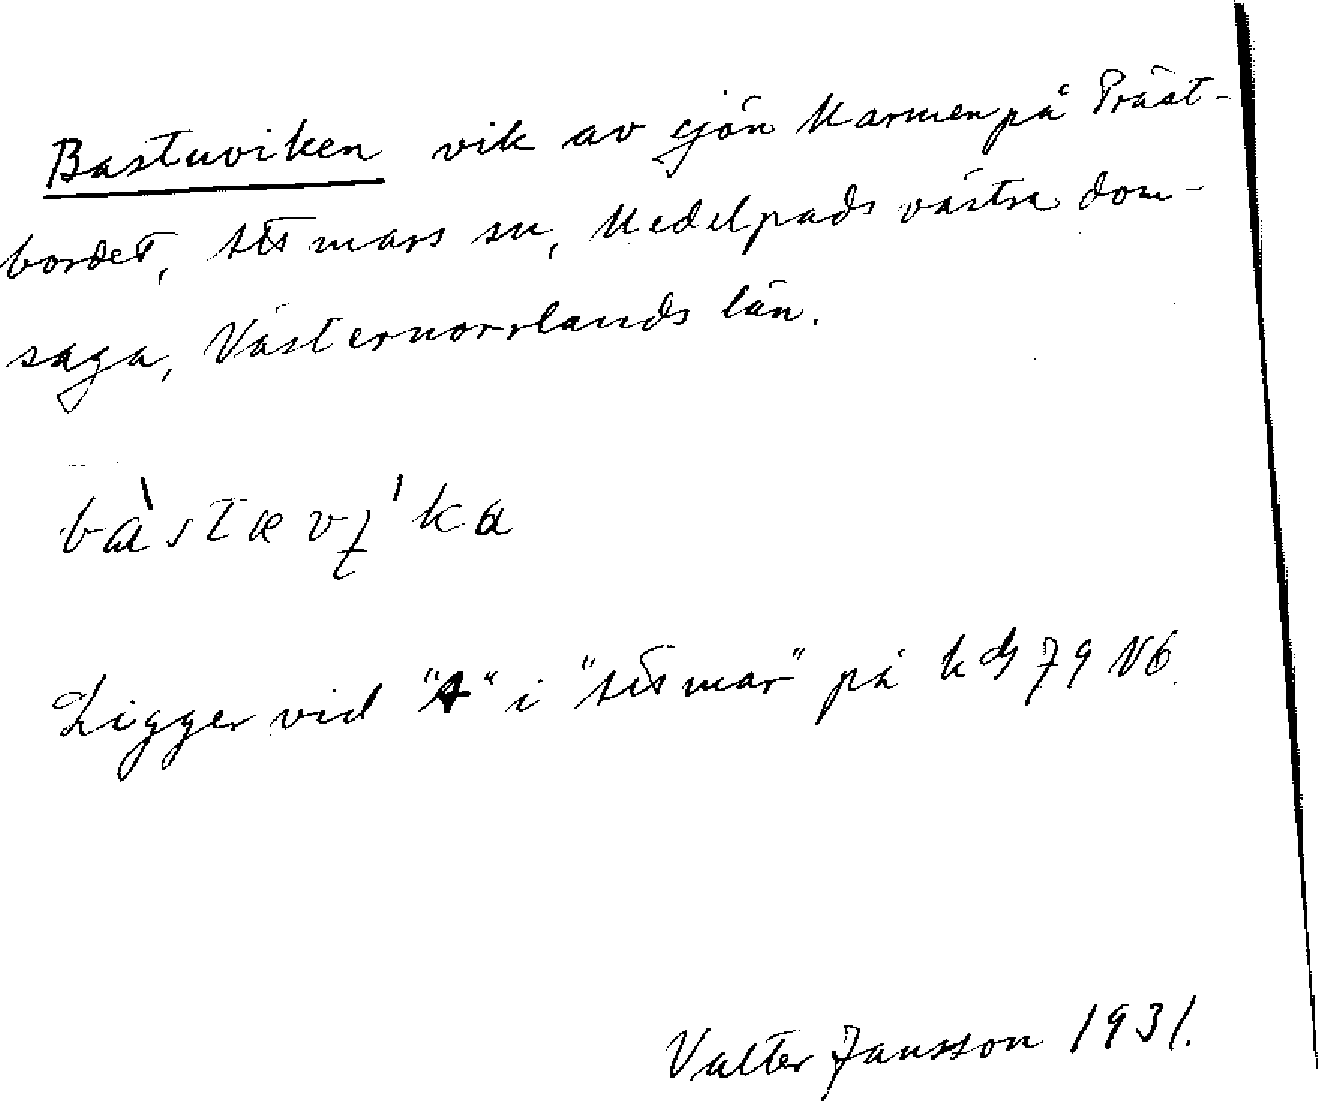 Bastuviken vik av sjön Marmen på Präst-
bordet, Attmars sn, Medelpads västra dom-
saga, Västernorrlands län.
bàstævi̜'ka
Ligger vid "A" i "Attmar" på kbl 79 NO.
Valter Jansson 1931.